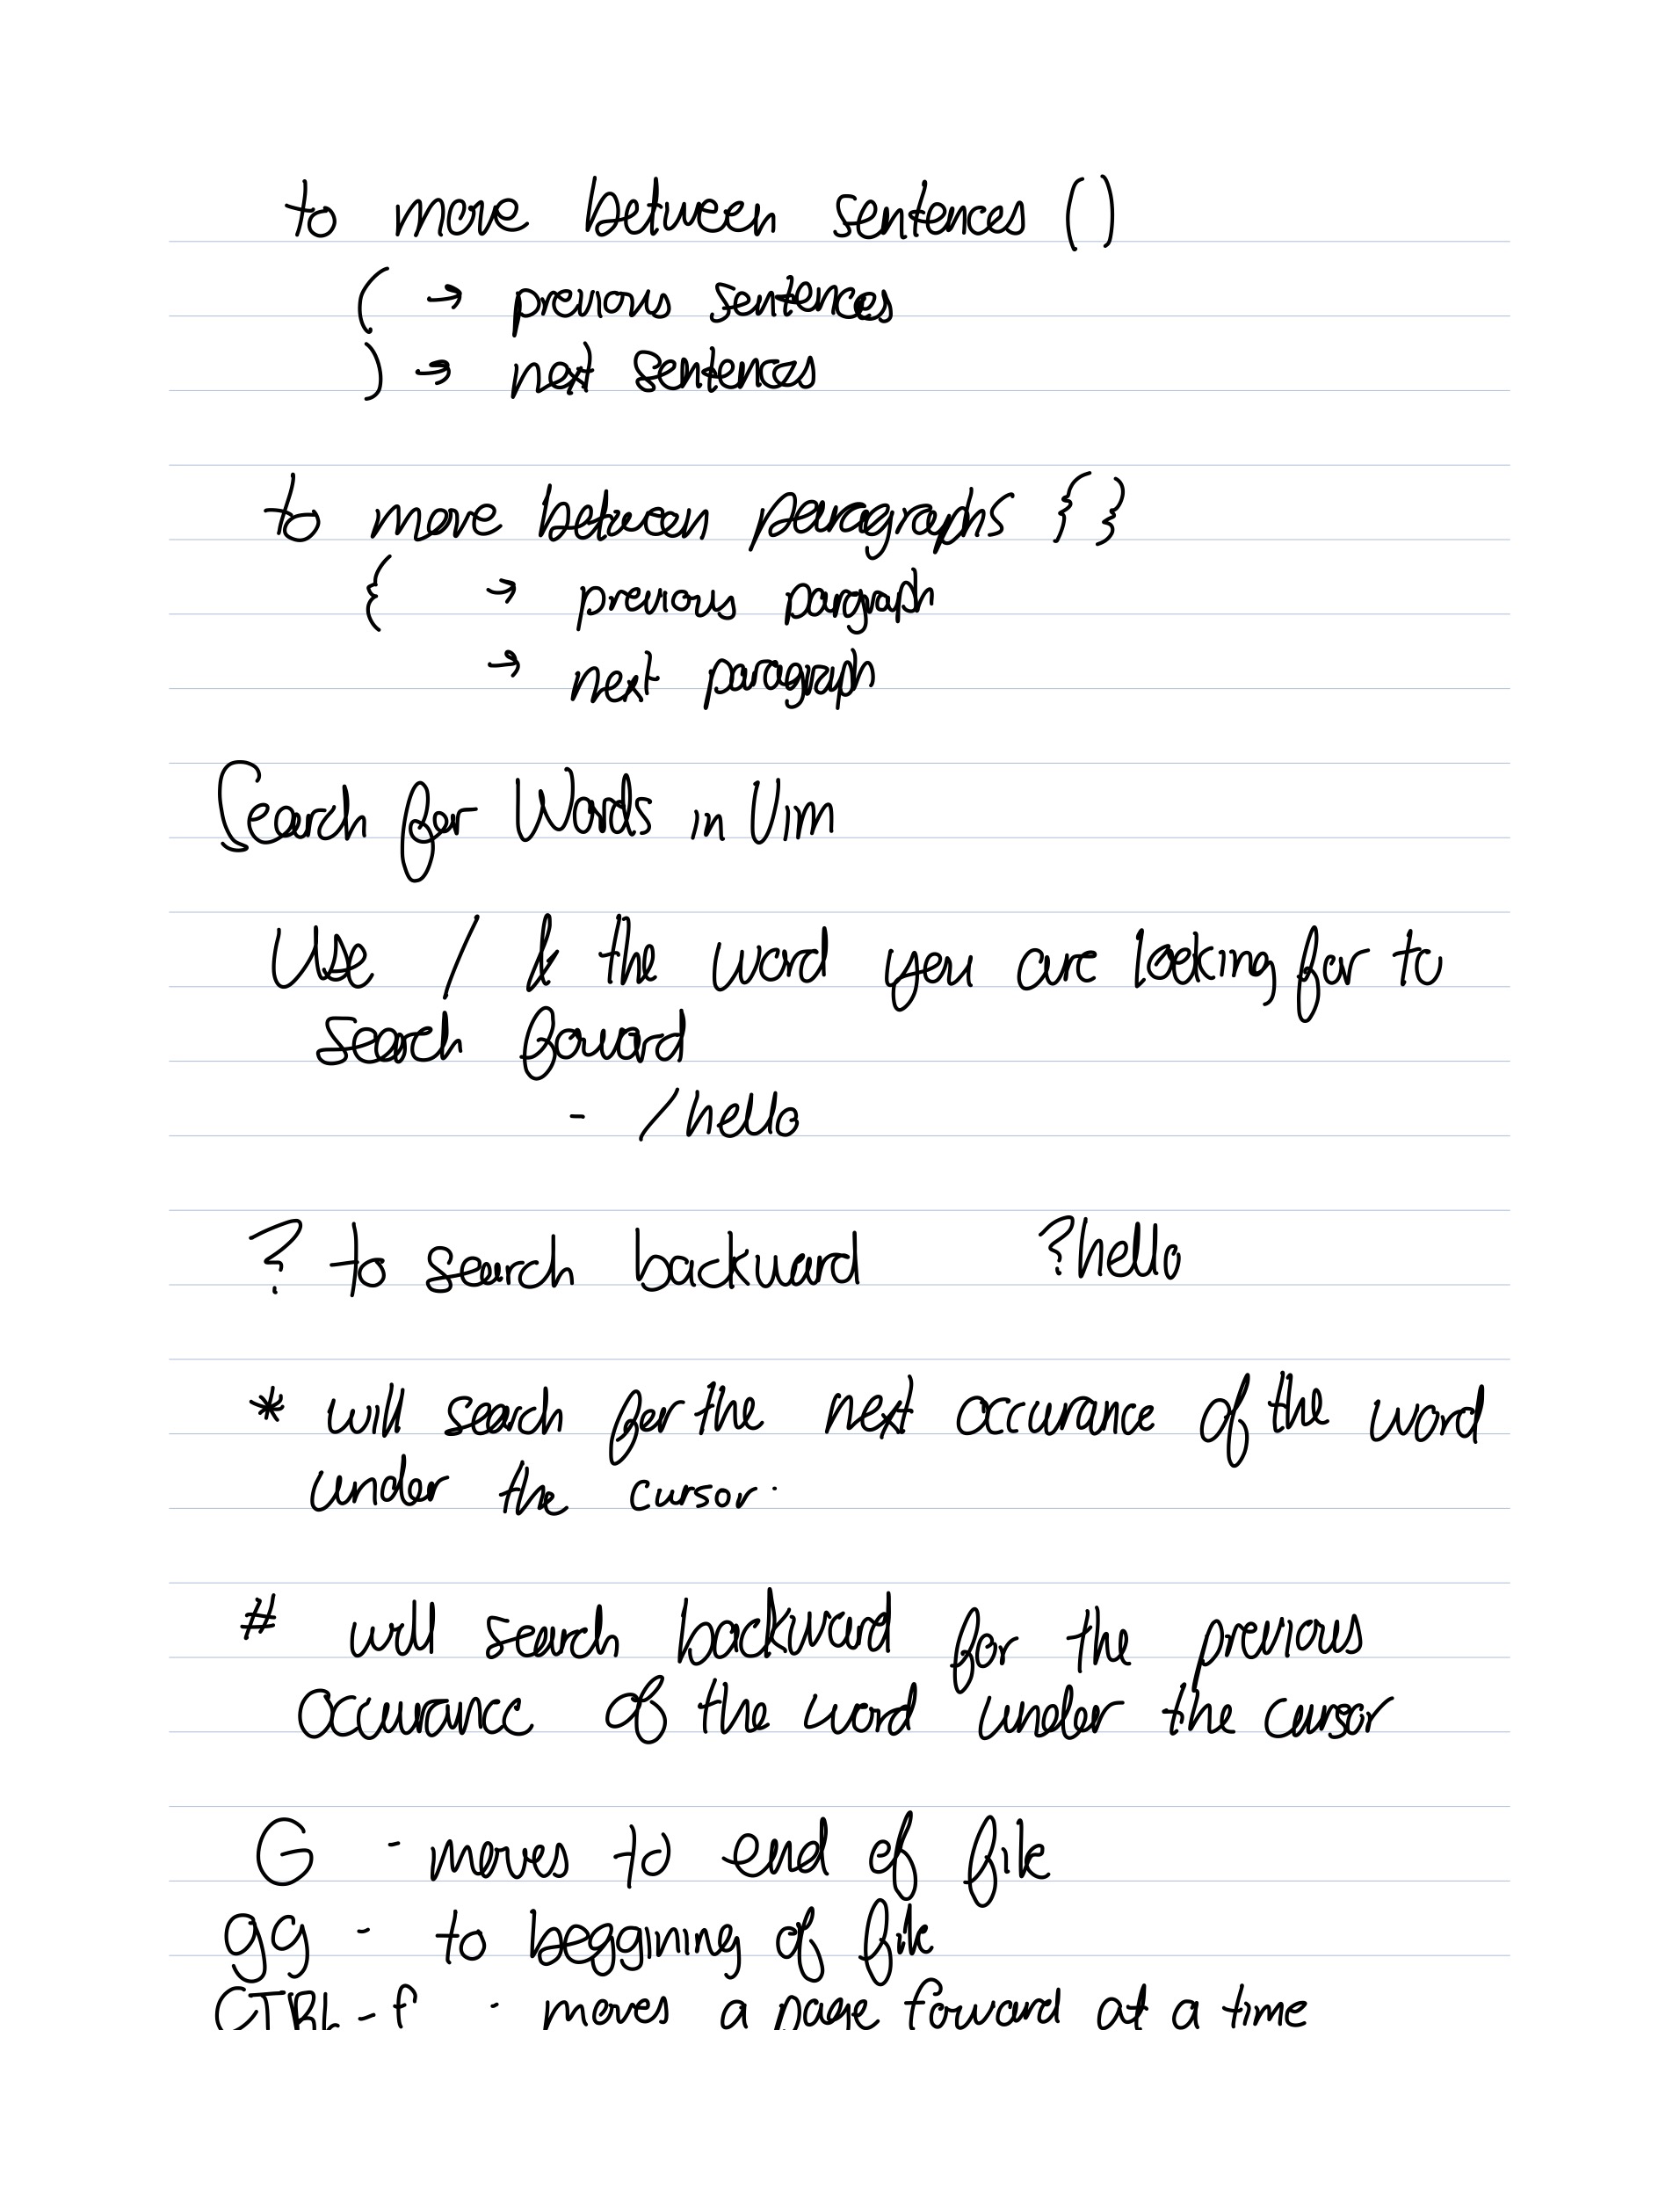 to move between sentences ()
( → pervious sentences
) → next sentences
to move between paragraphs { }
{ → previous paragraph
→ next paragraph
Search for Words in Vim
Use / & the word you are looking for to
search foward
- /hello
? to search backward ?hello
* will search for the next occurance of the word
under the cursor.
# will search backward for the previous
occurance of the word under the cursor
G - moves to end of file
gg - to beggining of file
CTRL - f - moves a page foward at a time